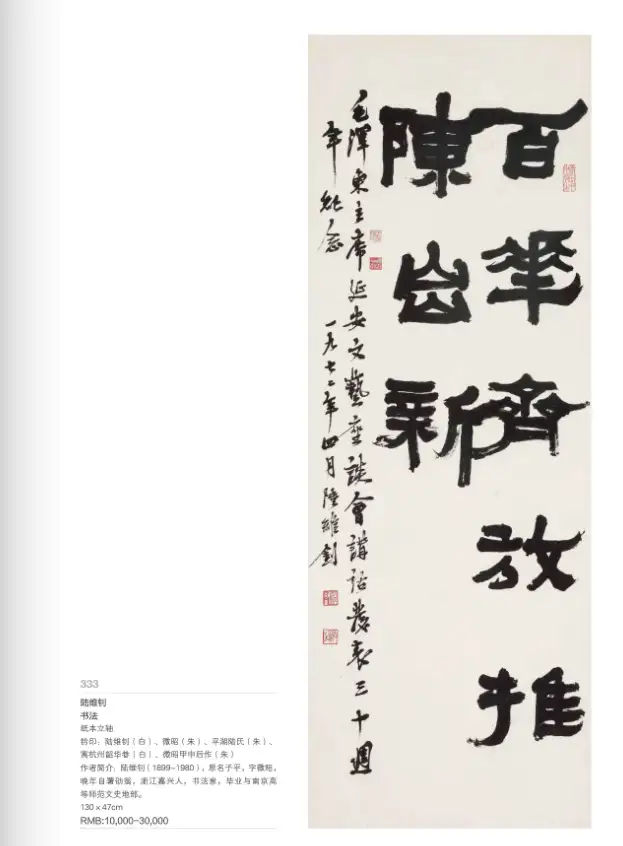 百華齊放推
陳出新
毛澤東主席延安文藝座談會講話發表三十週
年紀念 一九七二年四月陸維釗
333
陆维钊
书法
纸本立轴
钤印：陆维钊（白）、微昭（朱）、平湖陆氏（朱）、
寓杭州韶华巷（白）、微昭甲申后作（朱）
作者简介：陆维钊（1899~1980），原名子平，字微昭，
晚年自署劭翁，浙江嘉兴人，书法家，毕业与南京高
等师范文史地部。
130×47cm
RMB:10,000-30,000